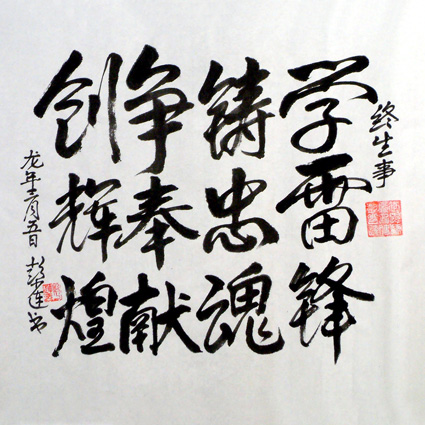 终生事
学雷锋
铸忠魂
争奉献
创辉煌
龙年三月五日